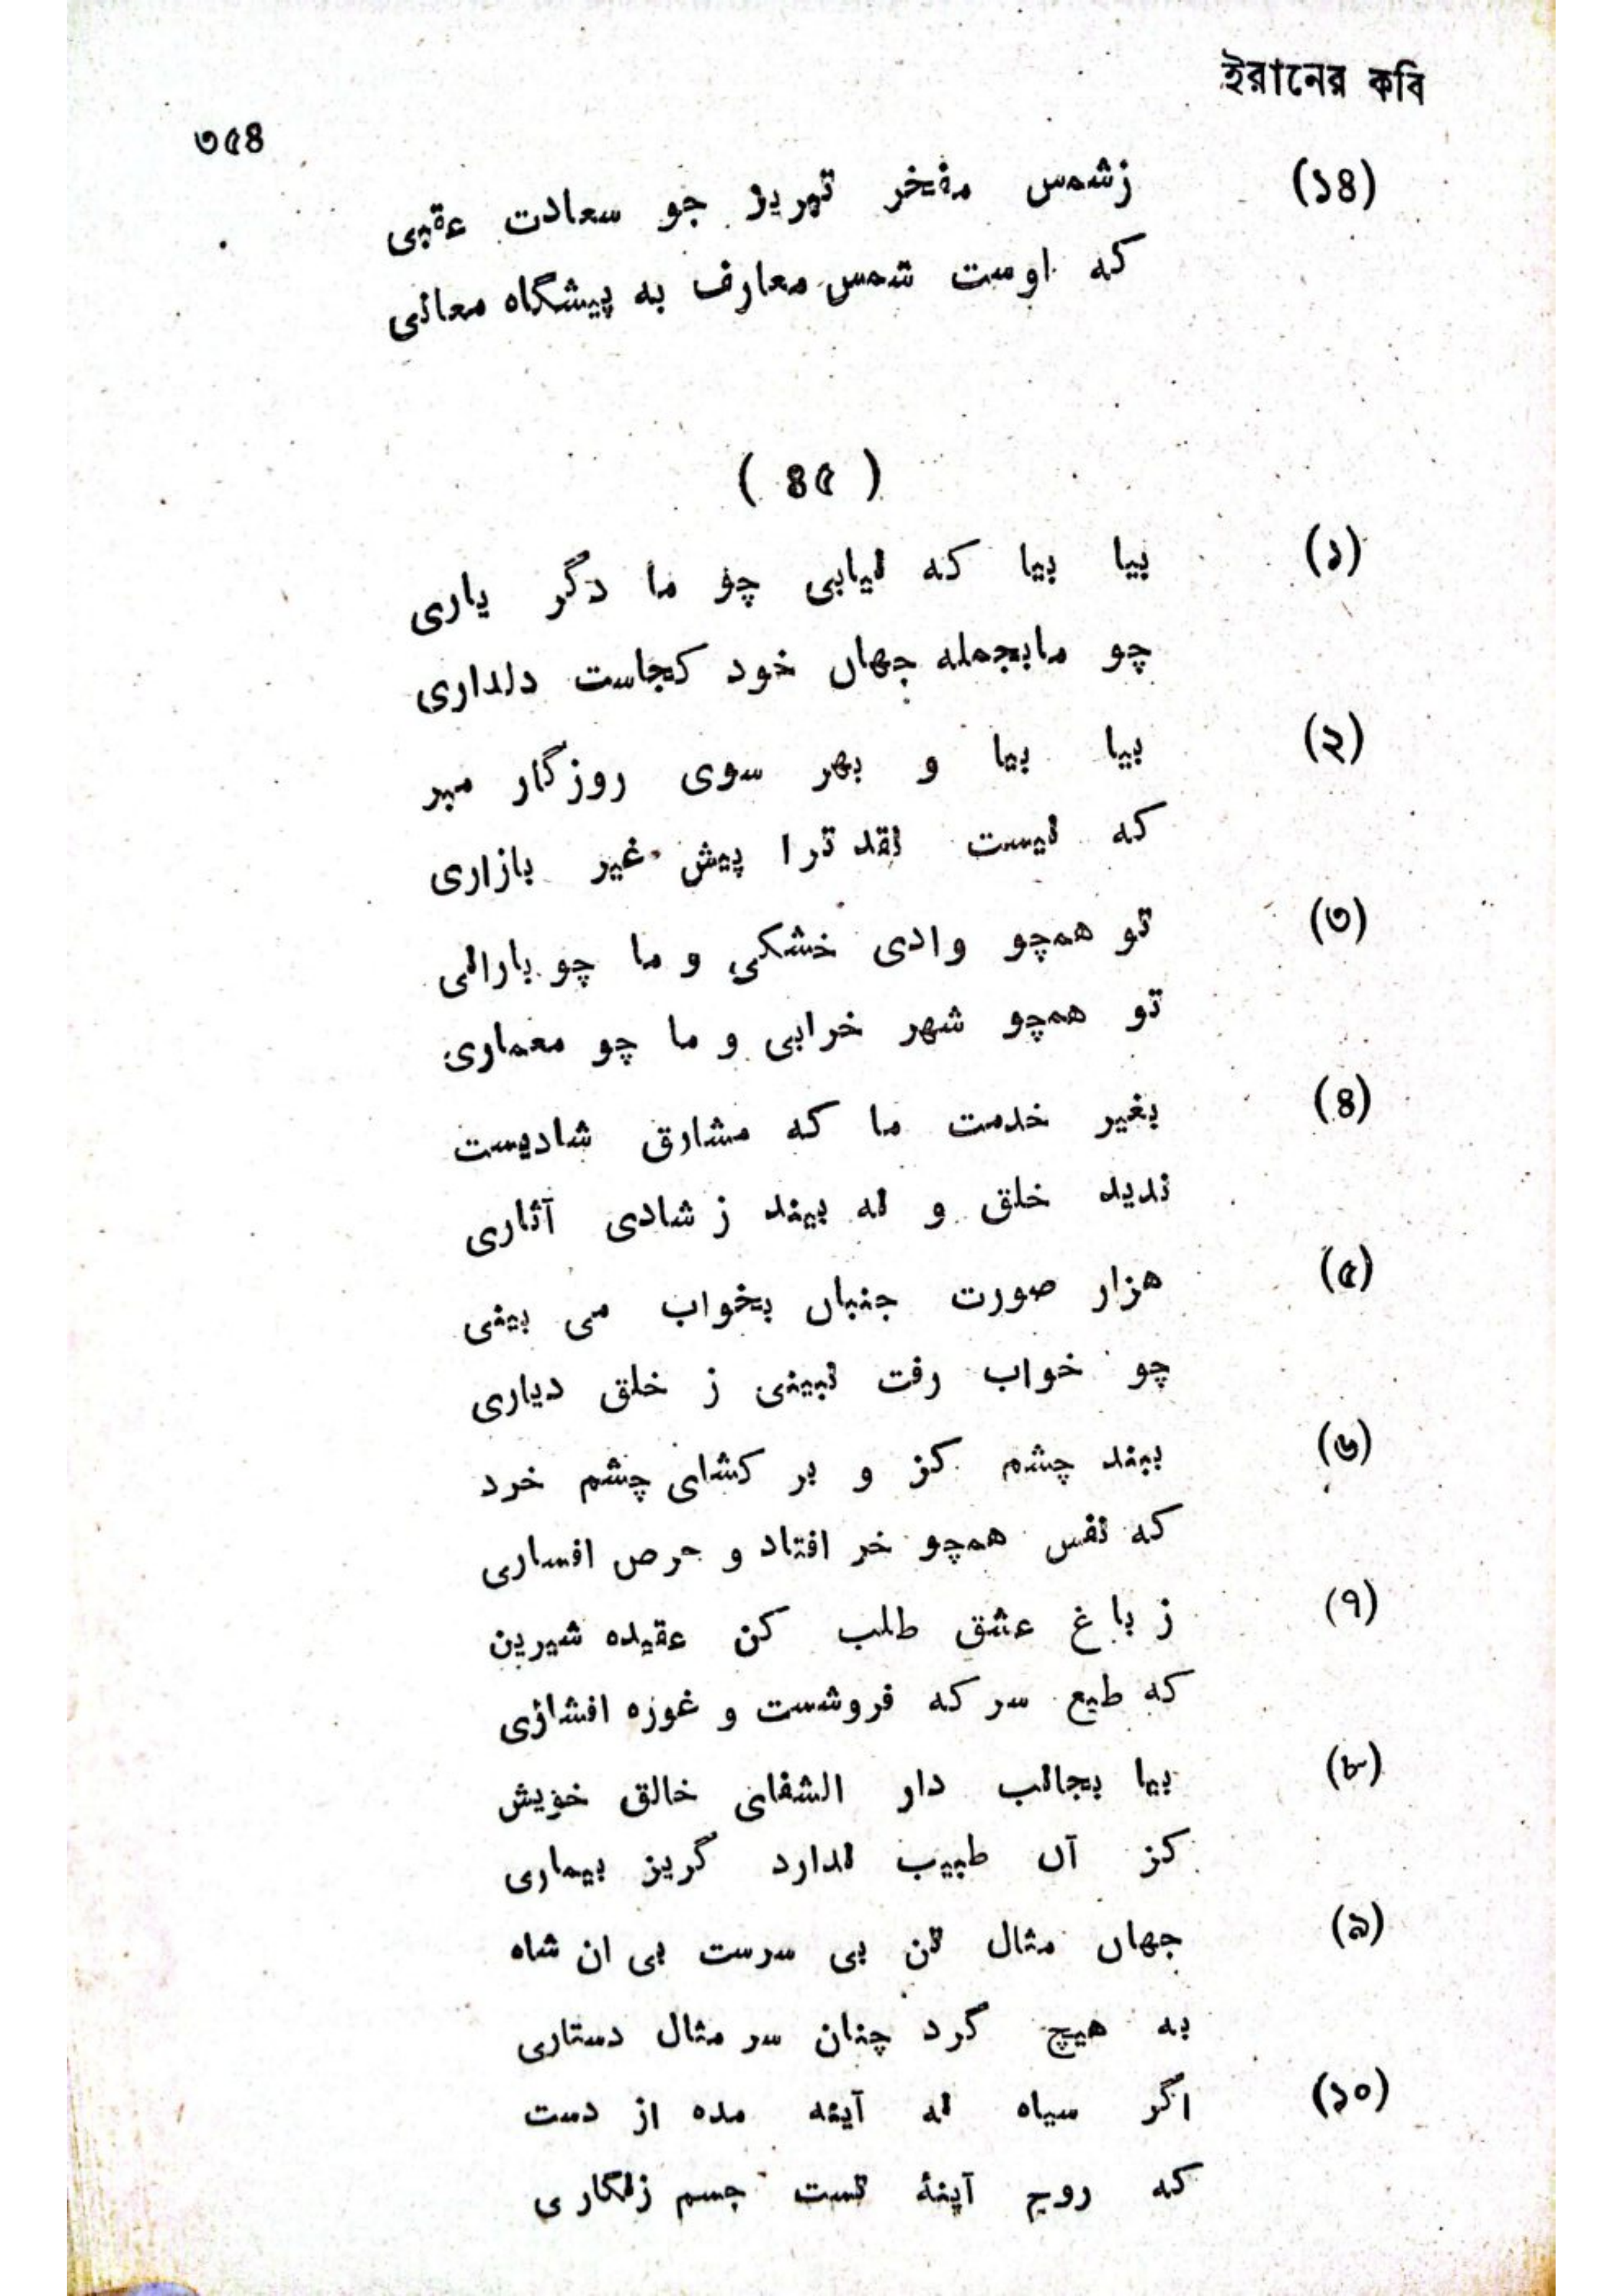 ইরানের কবি
৩৫৪
(১৪) زشمس مفخر تبریز جو سعادت عقبی
که اوست شمس معارف به پیشگاه معانی
( ৪৫ )
(১) بیا بیا که نیابی چو ما دگر یاری
چو مابجمله جهان خود کجاست دلداری
(২) بیا بیا و بهر سوی روزگار مبر
که نیست نقد ترا پیش غیر بازاری
(৩) تو همچو وادی خشکی و ما چو بارانی
تو همچو شهر خرابی و ما چو معماری
(৪) بغیر خدمت ما که مشارق شادیست
ندید خلق و نه بیند ز شادی آثاری
(৫) هزار صورت جنبان بخواب می بینی
چو خواب رفت نبینی ز خلق دیاری
(৬) ببند چشم کز و بر کشای چشم خرد
که نفس همچو خر افتاد و حرص افساری
(৭) ز باغ عشق طلب کن عقیده شیرین
که طبع سرکه فروشست و غوزه افشاری
(৮) بیا بجانب دار الشفای خالق خویش
کز آن طبیب ندارد گریز بیماری
(৯) جهان مثال تن بی سرست بی ان شاه
به هیچ گرد چنان سر مثال دستاری
(১০) اگر سیاه نه آینه مده از دست
که روح آینهٔ تست جسم زنگاری